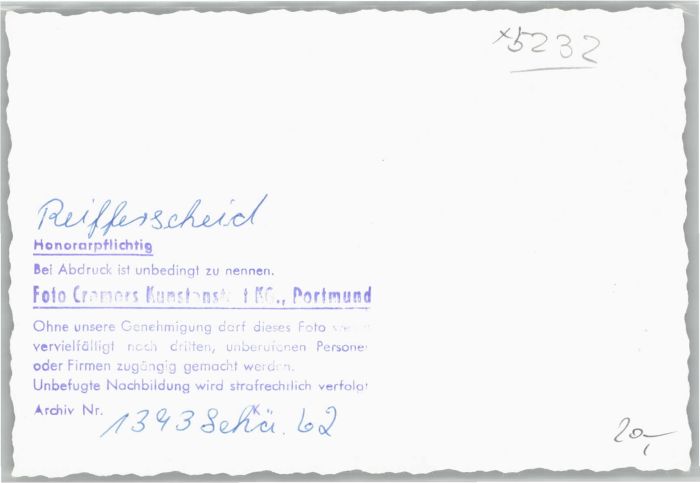 x5232
Reifferscheid
Honorarpflichtig
Bei Abdruck ist unbedingt zu nennen.
Foto Cramers Kunstanst t KG., Dortmund
Ohne unsere Genehmigung darf dieses Foto
vervielfältigt noch dritten, unberufenen Persone
oder Firmen zugängig gemacht werden.
Unbefugte Nachbildung wird strafrechtlich verfolgt
Archiv Nr. 1393 Schä. 62
20,-